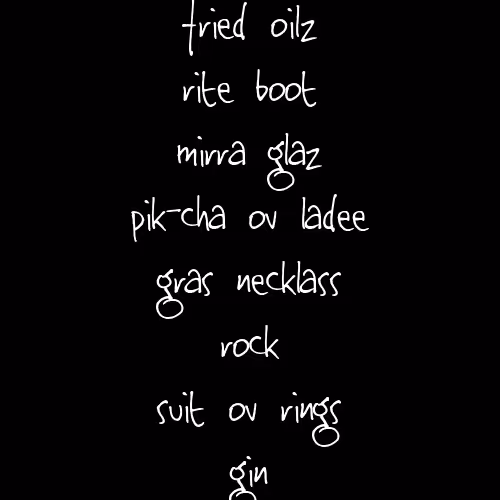 fried oilz
rite boot
mirra glaz
pik-cha ov ladee
gras necklass
rock
suit ov rings
gin